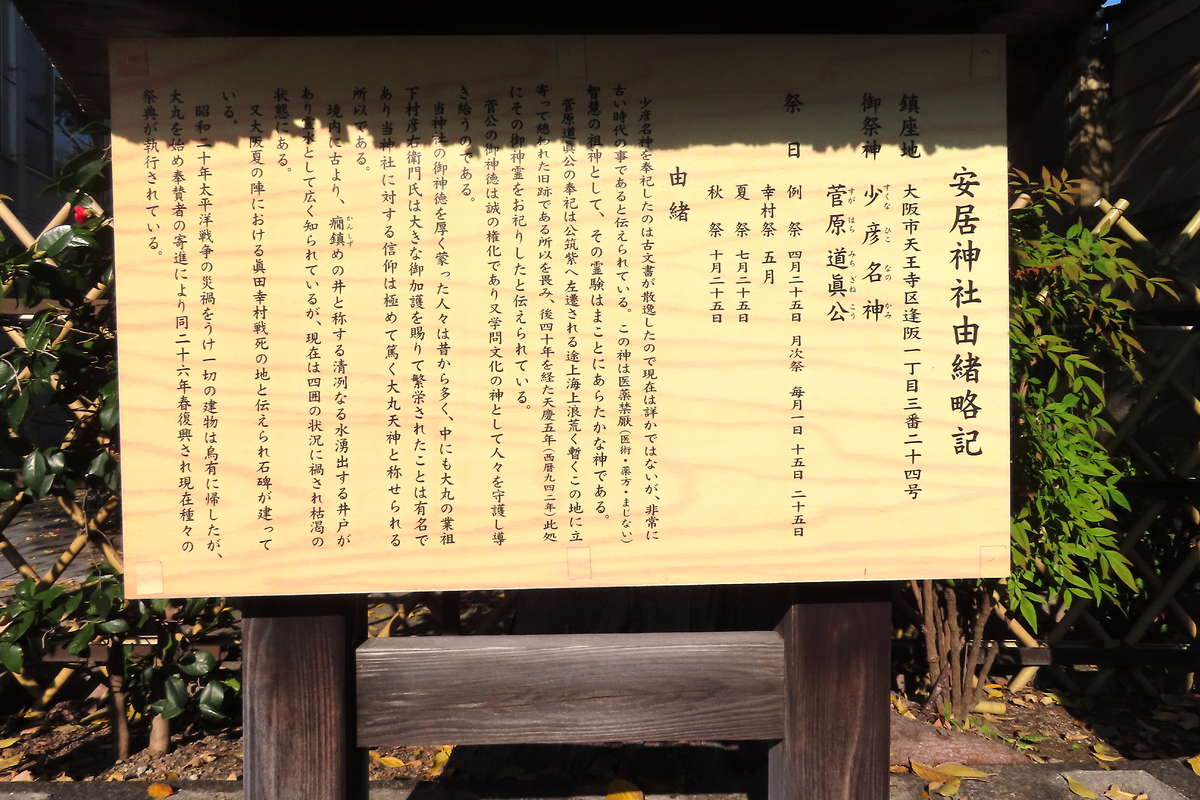 安居神社由緒略記
鎮座地 大阪市天王寺区逢阪一丁目三番二十四号
御祭神 少彦名神
すくな ひこ なの かみ
菅原道眞公
すが はら みち ざね こう
祭日 例祭 四月二十五日 月次祭 毎月一日 十五日 二十五日
幸村祭 五月
夏祭 七月二十五日
秋祭 十月二十五日
由緒
少彦名神を奉祀したのは古文書が散逸したので現在は詳かではないが、非常に
古い時代の事であると伝えられている。この神は医薬禁厭(医術・薬方・まじない)
智慧の祖神として、その霊験はまことにあらたかな神である。
菅原道眞公の奉祀は公筑紫へ左遷される途上海上浪荒く暫くこの地に立
寄って憩われた旧跡である所以を畏み、後四十年を経た天慶五年(西暦九四二年)此処
にその御神霊をお祀りしたと伝えられている。
菅公の御神徳は誠の権化であり又学問文化の神として人々を守護し導
き給うのである。
当神社の御神徳を厚く蒙った人々は昔から多く、中にも大丸の業祖
下村彦右衛門氏は大きな御加護を賜りて繁栄されたことは有名で
あり当神社に対する信仰は極めて篤く大丸天神と称せられる
所以である。
境内に古より、癇鎮めの井と称する清洌なる水湧出する井戸が
かんしず
あり霊水として広く知られているが、現在は四囲の状況に禍され枯渇の
状態にある。
又大阪夏の陣における眞田幸村戦死の地と伝えられ石碑が建って
いる。
昭和二十年太平洋戦争の災禍をうけ一切の建物は烏有に帰したが、
大丸を始め奉賛者の寄進により同二十六年春復興され現在種々の
祭典が執行されている。